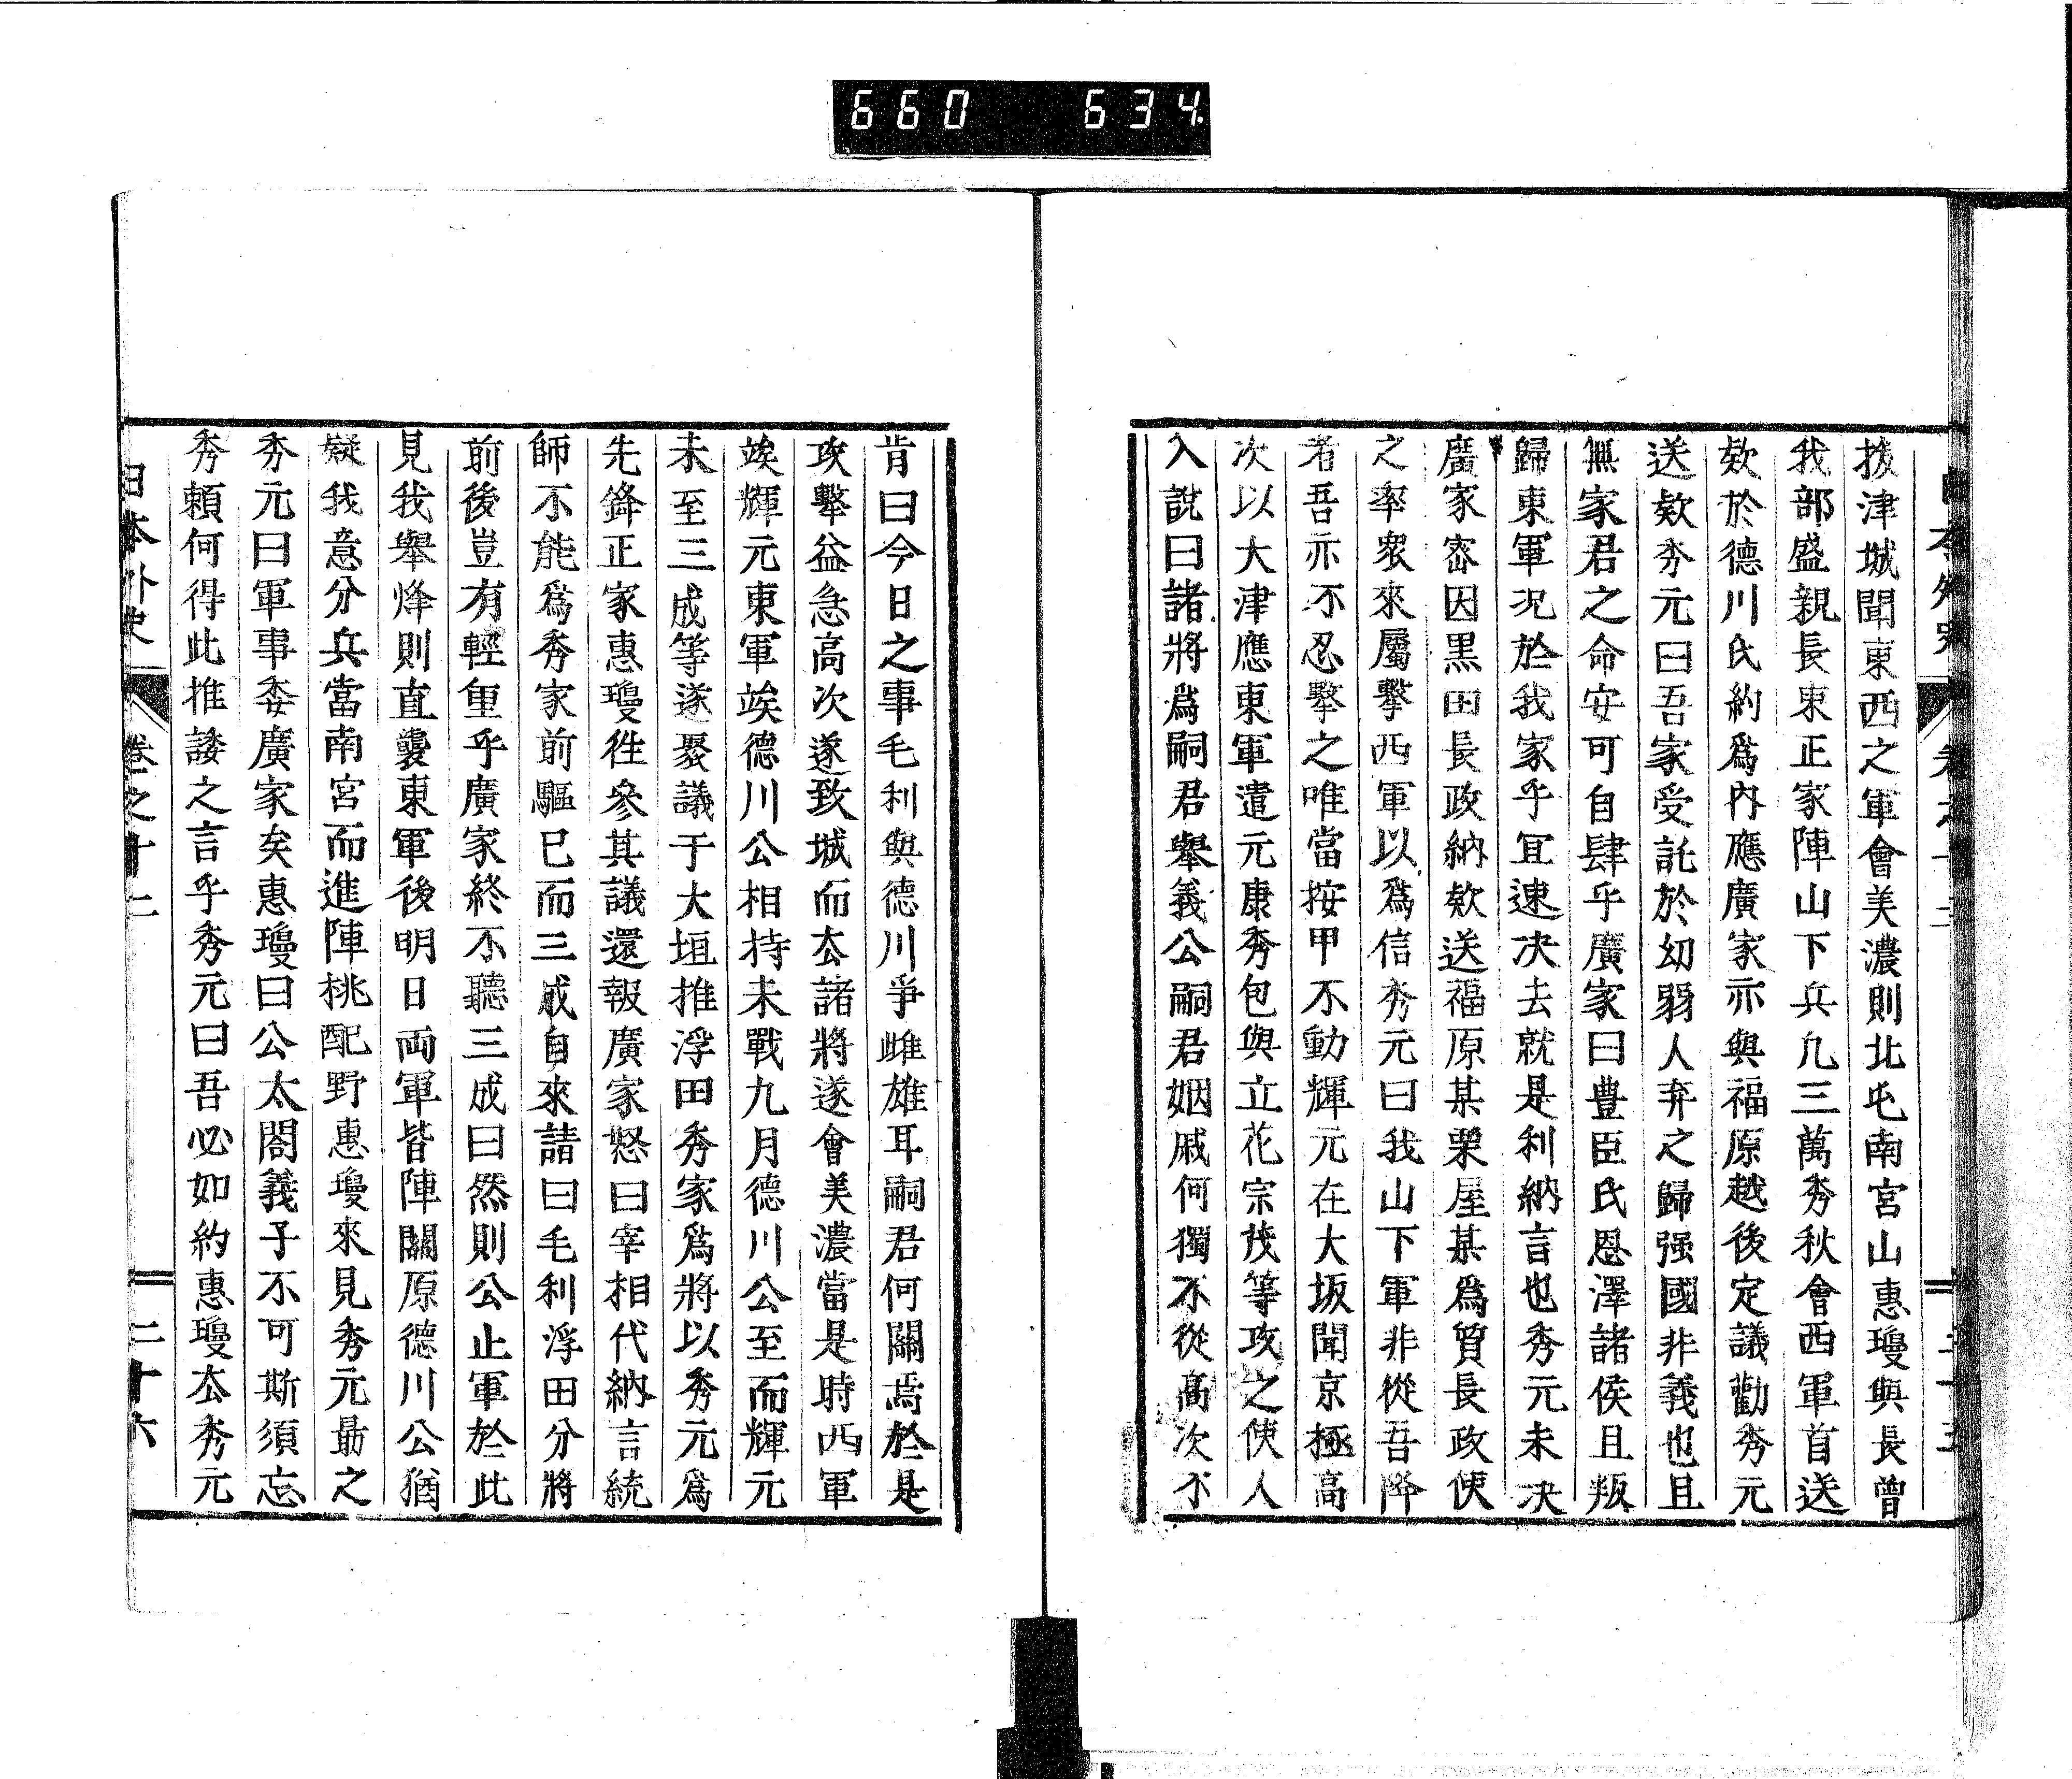 660 634
拔津城聞東西之軍會美濃則北屯南宮山惠瓊與長曾
我部盛親長束正家陣山下兵凡三萬秀秋會西軍首送
欵於德川氏約爲內應廣家亦與福原越後定議勸秀元
送欵秀元曰吾家受託於幼弱人弃之歸强國非義也且
無家君之命安可自肆乎廣家曰豊臣氏恩澤諸侯且叛
歸東軍况於我家乎宜速决去就是利納言也秀元未决
廣家密因黒田長政納欵送福原某栗屋某爲質長政使
之率衆來屬擊西軍以爲信秀元曰我山下軍非從吾降
者吾亦不忍擊之唯當按甲不動輝元在大坂聞京極高
次以大津應東軍遣元康秀包與立花宗茂等攻之使人
入說曰諸將爲嗣君舉義公嗣君姻戚何獨不從高次不
肯曰今日之事毛利與德川爭雌雄耳嗣君何關焉於是
攻擊益急高次遂致城而去諸將遂會美濃當是時西軍
竢輝元東軍竢德川公相持未戰九月德川公至而輝元
未至三成等遂聚議于大垣推浮田秀家爲將以秀元爲
先鋒正家惠瓊徃參其議還報廣家怒曰宰相代納言統
師不能爲秀家前驅已而三成自來詰曰毛利浮田分將
前後豈有輕重乎廣家終不聽三成曰然則公止軍於此
見我舉烽則直襲東軍後明日両軍皆陣關原德川公猶
疑我意分兵當南宮而進陣桃配野惠瓊來見秀元勗之
秀元曰軍事委廣家矣惠瓊曰公太閤義子不可斯須忘
秀頼何得此推諉之言乎秀元曰吾必如約惠瓊去秀元
日本外史 卷之十二 二十六